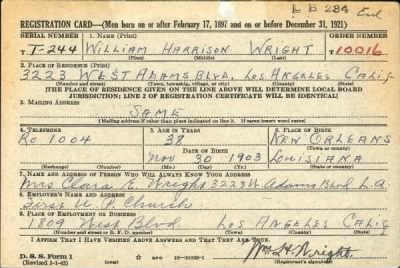 L B 284 End
REGISTRATION CARD—(Men born on or after February 17, 1897 and on or before December 31, 1921)
SERIAL NUMBER 1. NAME (Print) ORDER NUMBER
T-244 WILLIAM HARRISON WRIGHT 10016
(First) (Middle) (Last)
2. PLACE OF RESIDENCE (Print)
3223 WEST ADAMS BLVD, LOS ANGELES CALIF
(Number and street) (Town, township, village, or city) (County) (State)
[THE PLACE OF RESIDENCE GIVEN ON THE LINE ABOVE WILL DETERMINE LOCAL BOARD
JURISDICTION; LINE 2 OF REGISTRATION CERTIFICATE WILL BE IDENTICAL]
3. MAILING ADDRESS
SAME
[Mailing address if other than place indicated on line 2. If same insert word same]
4. TELEPHONE 5. AGE IN YEARS 6. PLACE OF BIRTH
Ro 1004 38 NEW ORLEANS
DATE OF BIRTH (Town or county)
NOV 30 1903 LOUISIANA
(Exchange) (Number) (Mo.) (Day) (Yr.) (State or country)
7. NAME AND ADDRESS OF PERSON WHO WILL ALWAYS KNOW YOUR ADDRESS
Mrs Clara E. Wright 3223 W Adams Blvd L.A.
8. EMPLOYER'S NAME AND ADDRESS
First U.P. Church
9. PLACE OF EMPLOYMENT OR BUSINESS
1809 West Blvd. LOS ANGELES CALIF
(Number and street or R. F. D. number) (Town) (County) (State)
I AFFIRM THAT I HAVE VERIFIED ABOVE ANSWERS AND THAT THEY ARE TRUE.
D. S. S. Form 1
(Revised 1-1-42) (over) Wm H. Wright
(Registrant's signature)